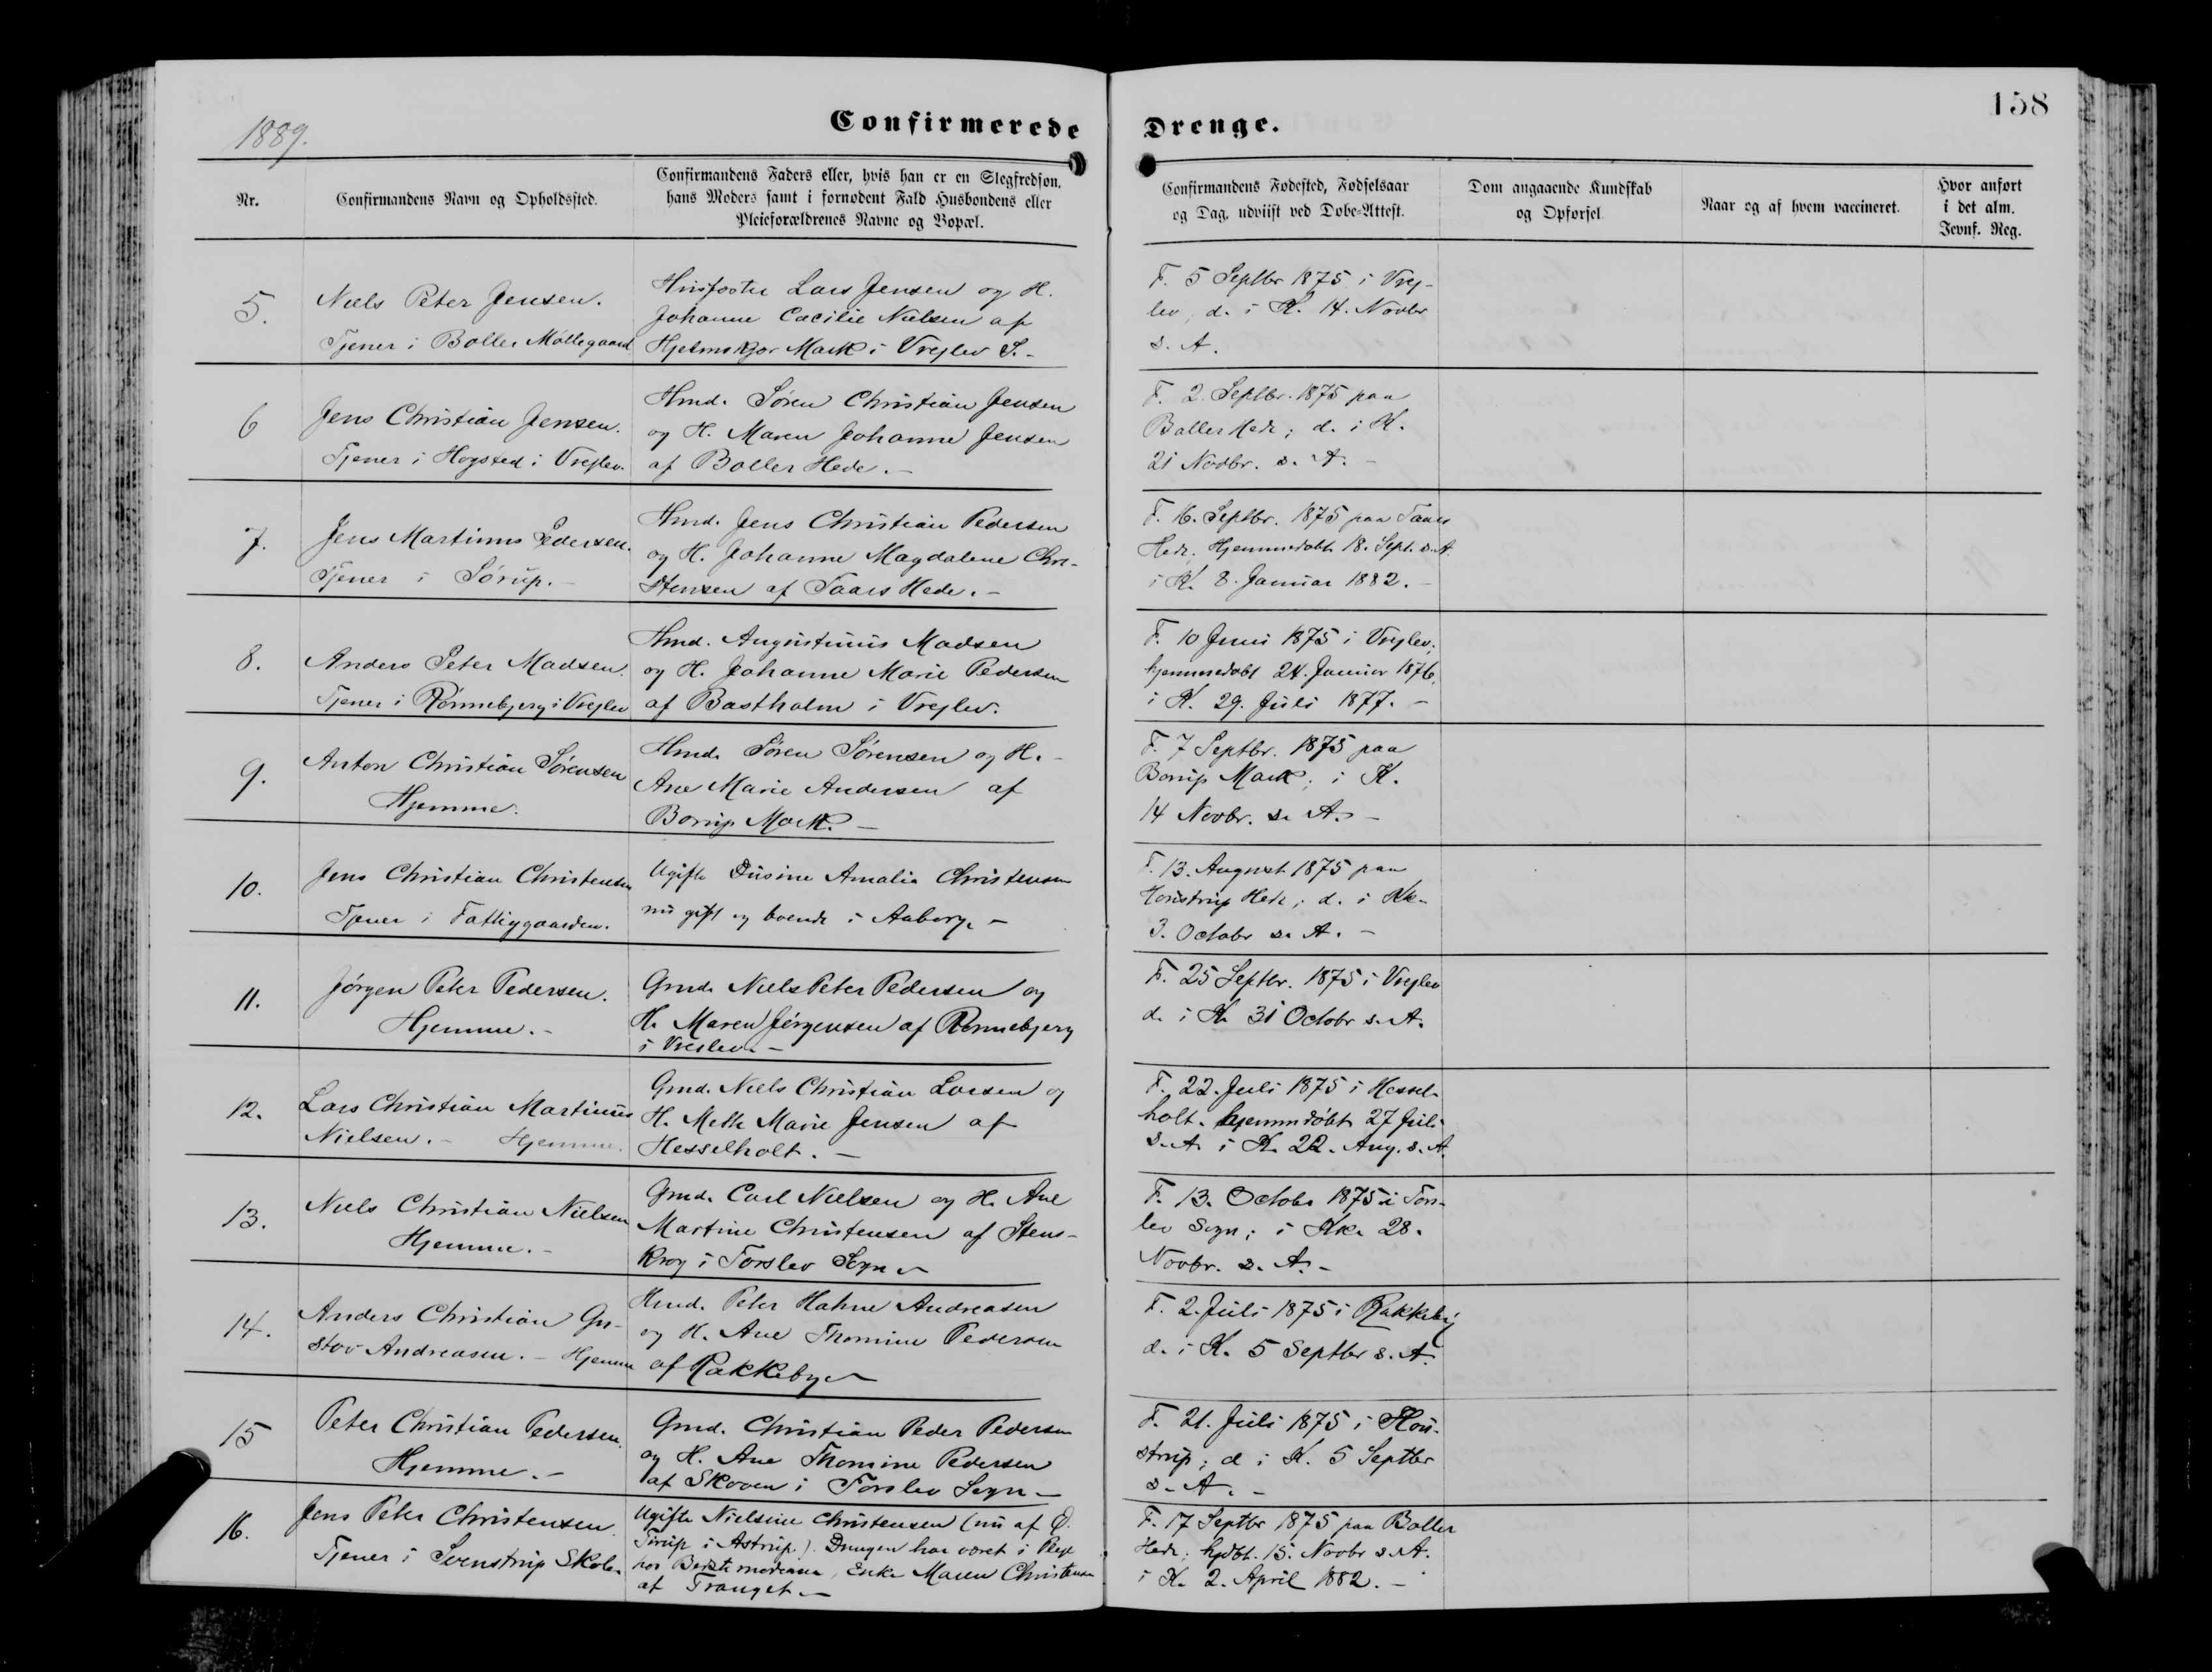 158
1889.
Confirmerede Drenge.
Nr.
Confirmandens Navn og Opholdssted.
Confirmandens Faders eller, hvis han er en Slegfredsøn,
hans Moders samt i fornødent Fald Husbondens eller
Pleieforældrenes Navne og Bopæl.
Confirmandens Fødested, Fødselsaar
og Dag, udviist ved Døbe-Attest.
Dom angaaende Kundskab
og Opførsel
Naar og af hvem vaccineret.
Hvor anført
i det alm.
Jevnf. Reg.
5.
Niels Peter Jensen.
Tjener i Boller Møllegaard
Husfoster Lars Jensen og H.
Johanne Cacilie Nielsen af
Hjelmskjær Mark i Vrejlev S.-
F. 5 Septbr 1875 i Vrej-
lev, d. i K. 14. Novbr
s. A.
6
Jens Christian Jensen.
Tjener i Høgsted i Vrejlev.
Hmd. Søren Christian Jensen
og H. Maren Johanne Jensen
af Boller Hede.-
F. 2. Septbr. 1875 paa
Boller Hede; d. i K.
21 Novbr. s. A.-
7.
Jens Martinus Pedersen.
Tjener i Sørup.-
Hmd. Jens Christian Pedersen
og H. Johanne Magdalene Chri-
stensen af Taars Hede.-
F. 16. Septbr. 1875 paa Taars
Hede; Hjemmedøbt 18. Sept. s.A.
i K. 8. Januar 1882.-
8.
Anders Peter Madsen.
Tjener i Rønnebjerg i Vrejlev
Hmd. Augustinus Madsen
og H. Johanne Marie Pedersen
af Bastholm i Vrejlev.
F. 10 Juni 1875 i Vrejlev;
hjemmedøbt 24. Januar 1876,
i K. 29. Juli 1877.-
9.
Anton Christian Sørensen
Hjemme.
Hmd. Søren Sørensen og H.-
Ane Marie Andersen af
Borup Mark.-
F. 7 Septbr. 1875 paa
Borup Mark; i K.
14 Novbr. s. A.-
10.
Jens Christian Christensen
Tjener i Fattiggaarden.
Ugifte Dusine Amalia Christensen
nu gift og boende i Aalborg.-
F. 13. August 1875 paa
Houstrup Hede; d. i Kk.
3. Octobr s. A.-
11.
Jørgen Peter Pedersen.
Hjemme.-
Gmd. Niels Peter Pedersen og
H. Maren Jørgensen af Rønnebjerg
i Vrejlev.-
F. 25 Septbr. 1875 i Vrejlev
d. i K. 31 Octobr s. A.
12.
Lars Christian Martinus
Nielsen.- Hjemme.
Gmd. Niels Christian Larsen og
H. Mette Marie Jensen af
Hesselholt.-
F. 22. Juli 1875 i Hessel-
holt. hjemmedøbt 27 Juli
s. A. i K. 22. Aug. s. A.
13.
Niels Christian Nielsen
Hjemme.-
Gmd. Carl Nielsen og H. Ane
Martine Christensen af Stens-
krog i Torslev Sogn-
F. 13. Octobr 1875 i Tors-
lev Sogn; i Kk. 28.
Novbr. s. A.-
14.
Anders Christian Gu-
stav Andreasen.- Hjemme
Hmd. Peter Hahne Andreasen
og H. Ane Thomine Pedersen
af Rakkeby-
F. 2. Juli 1875 i Rakkeby
d. i K. 5 Septbr s. A.
15
Peter Christian Pedersen.
Hjemme.-
Gmd. Christian Peder Pedersen
og H. Ane Thomine Pedersen
af Skoven i Torslev Sogn-
F. 21. Juli 1875 i Hou-
strup; d i K. 5 Septbr
s. A.-
16.
Jens Peter Christensen.
Tjener i Svenstrup Skole
Ugifte Nielsine Christensen (nu af Ø.
i Astrup.). Drengen har været i Pleje
hos Bedstemoderen, Enke Maren Christensen
af Tranget-
F. 17 Septbr 1875 paa Boller
Hede; hjdbt. 15. Novbr s. A.
i K. 2. April 1882.-